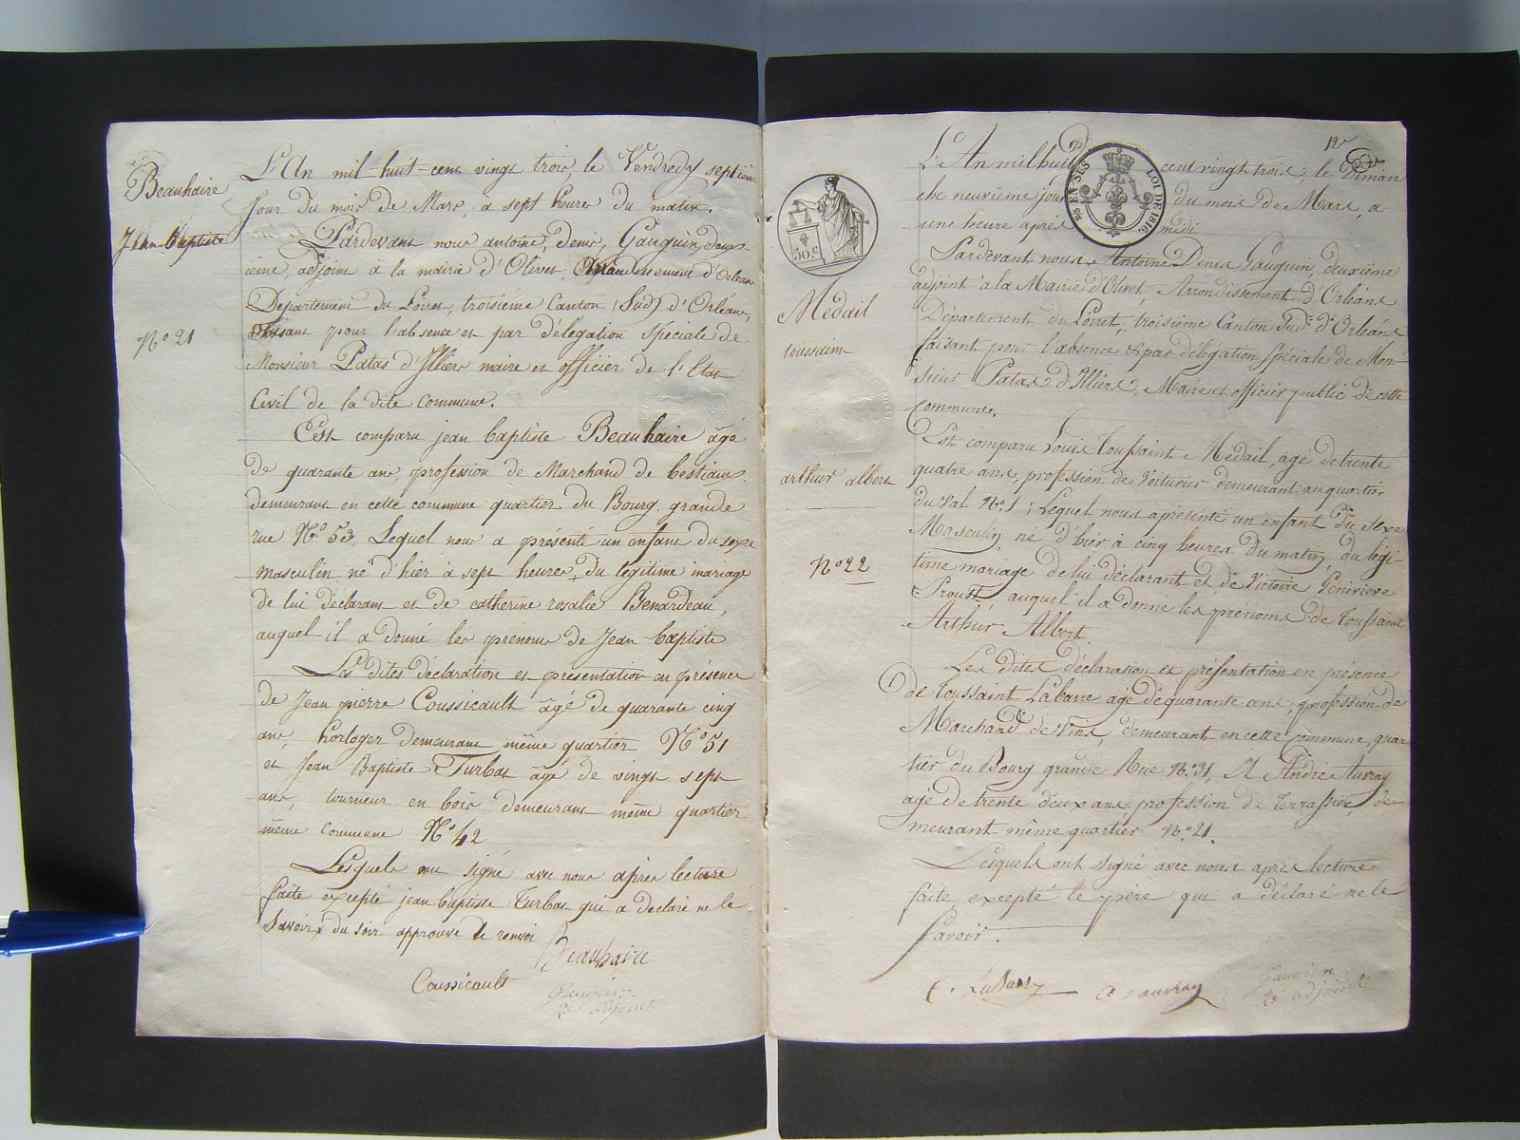 Beauhaire
Jean Baptiste
No 21
L'An mil-huit-cent vingt trois, le Vendredy septième
Jour du mois de Mars, a sept heures du matin.
Pardevant nous antoine, denis, Gauguin, deux-
ième, adjoint à la mairie d'Olivet, d'Orléans
Département du Loiret, troisième Canton (Sud) d'Orléans,
faisant pour l'absence et par délégation spéciale de
Monsieur Patas d'Illiers maire et officier de l'Etat
Civil de la dite commune.
Est comparu jean baptiste Beauhaire âgé
de quarante ans, profession de Marchand de bestiaux
demeurant en cette commune quartier du Bourg, grande
rue No 53, Lequel nous a présenté un enfant du sexe
masculin né d'hier à sept heures, du légitime mariage
de lui déclarant et de catherine rosalie Benardeau,
auquel il a donné les prenoms de Jean baptiste
Les dites déclaration et présentation en présence
de Jean pierre Coussicault âgé de quarante cinq
ans, horloger demeurant même quartier No 51
et Jean Baptiste Turbat âgé de vingt sept
ans, tourneur en bois demeurant même quartier
même commune No 42
Lesquels ont signé avec nous après lecture
faite excepté jean baptiste Turbat qui a declaré ne le
Savoir, du soir approuvé le renvoi
Beauhaire
Coussicault
Gauguin
adjoint
12
EN SUS
LOI DE 1816
50c
Médail
toussaint
arthur albert
No 22
L'An mil huit cent vingt trois, le Diman
che neuvième jour du mois de Mars, a
une heure après midi
Pardevant nous Antoine Denis Gauguin, deuxième
adjoint à la Mairie d'Olivet, Arrondissement d'Orléans
Département du Loiret, troisième Canton Sud d'Orléans
faisant pour l'absence & par délégation spéciale de Mon-
sieur Patas d'Illiers, Maire et officier public de cette
commune.
Est comparu Louis Toussaint Médail, agé de trente
quatre ans, profession de Voiturier demeurant au quartier
du Val No 1; Lequel nous a présenté un enfant du sexe
Masculin, né d'hier à cinq heures du matin, du légi-
time mariage de lui déclarant et de Victoire Geneviève
Proust, auquel il a donné les prénoms de Toussaint
Arthur Albert.
Les dites déclaration et présentation en présence
de Toussaint Labarre agé de quarante ans, profession de
Marchand de Vins, demeurant en cette commune, quar
tier du Bourg grande Rue No 31, & André Auvray
agé de trente deux ans profession de Terrassier, de-
meurant même quartier No 21.
Lesquels ont signé avec nous après lecture
faite, excepté le père qui a déclaré ne le
savoir.
Auvray
Gauguin
adjoint